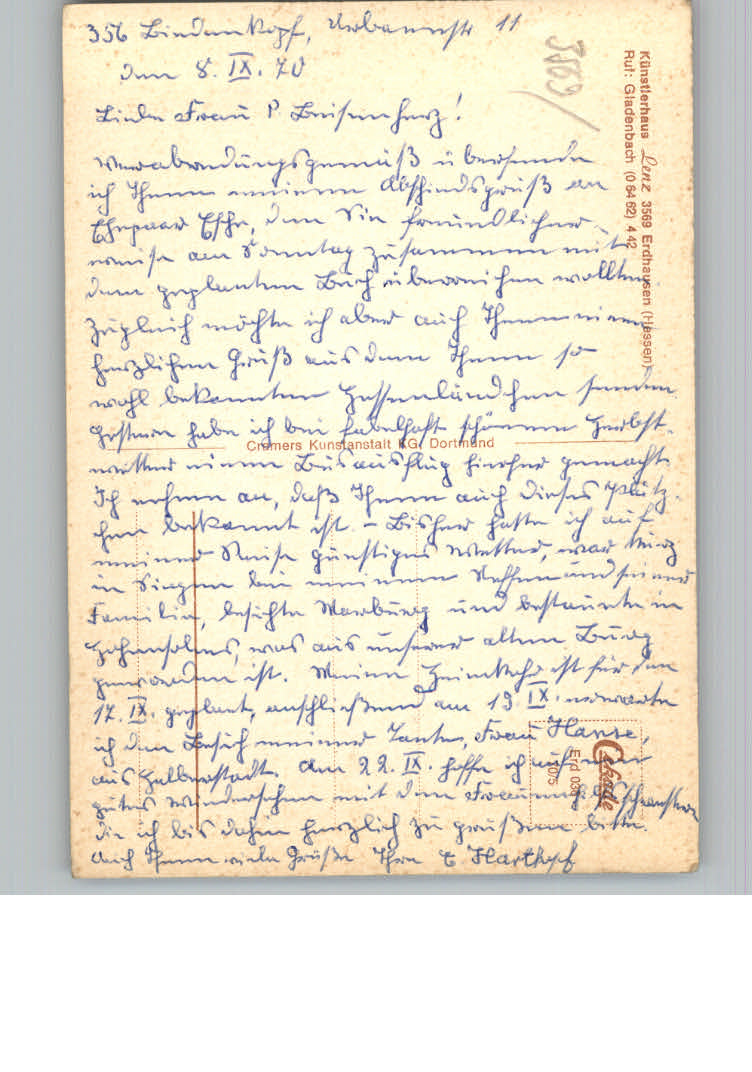 356 Biedenkopf, Urbanstr 11
den 8. IX. 70
Liebe Frau P. Beisenherz!
Verabredungsgemäß übersende
ich Ihnen meinen Abschiedsgruß an
Ehepaar Esche, den Sie freundlicher-
weise am Sonntag zusammen mit
dem geplanten Buch überreichen wollten.
Zugleich möchte ich aber auch Ihnen einen
herzlichen Gruß aus dem Ihnen so
wohl bekannten Hessenländchen senden.
Gestern habe ich bei fabelhaft schönem Herbst-
wetter einen Busausflug hierher gemacht.
Ich nehme an, daß Ihnen auch dieses Plätz-
chen bekannt ist. – Bisher hatte ich auf
meiner Reise günstiges Wetter, war kurz
in Siegen bei meinem Neffen und seiner
Familie, besichte Marburg und bestaunte in
Hohensolms, was aus unserer alten Burg
geworden ist. Meine Heimkehr ist für den
17. IX. geplant, anschließend am 19. IX. erwarte
ich den Besuch meiner Tante, Frau Hanse,
aus Halberstadt. Am 22. IX. hoffe ich auf ein
gutes Wiedersehen mit den Frauenhilfsschwestern
die ich bis dahin herzlich zu grüßen bitte.
Auch Ihnen viele Grüße Ihre E Hartkopf
3569
Künstlerhaus Lenz 3569 Erdhausen (Hessen)
Ruf: Gladenbach (0 64 62) 4 42
Cramers Kunstanstalt KG, Dortmund
Cekade
Erd 03